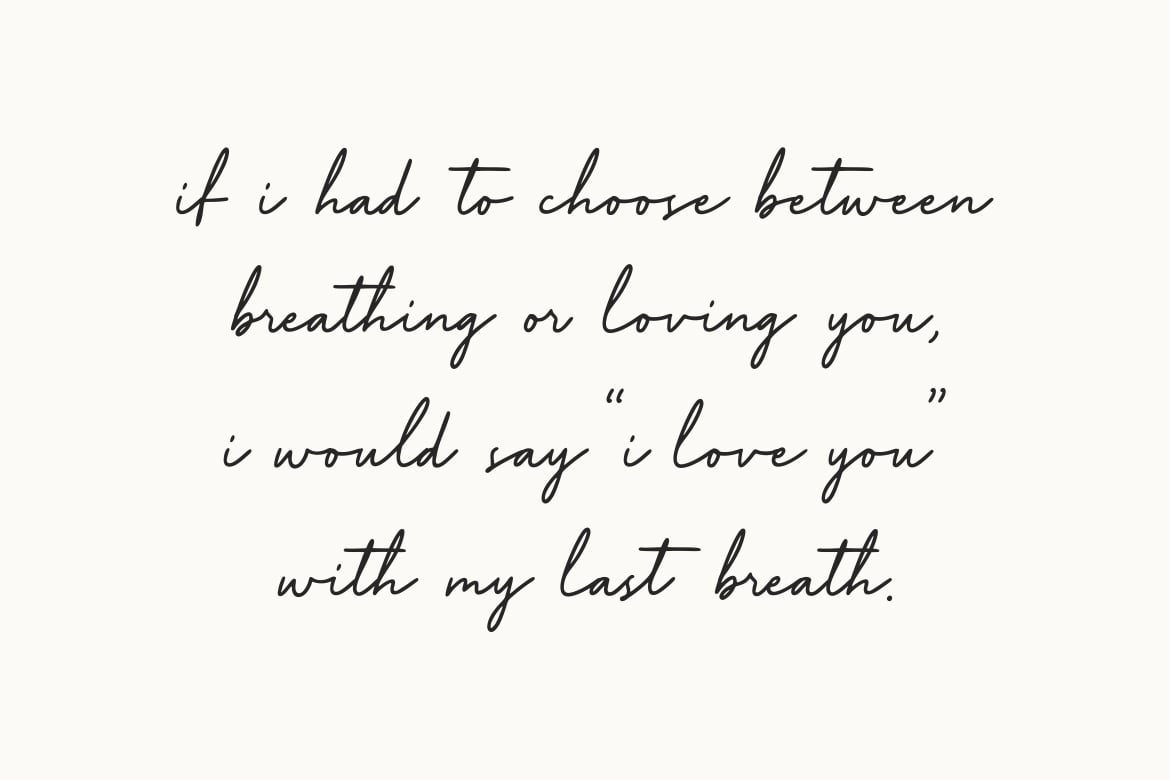 if i had to choose between
breathing or loving you,
i would say “i love you”
with my last breath.